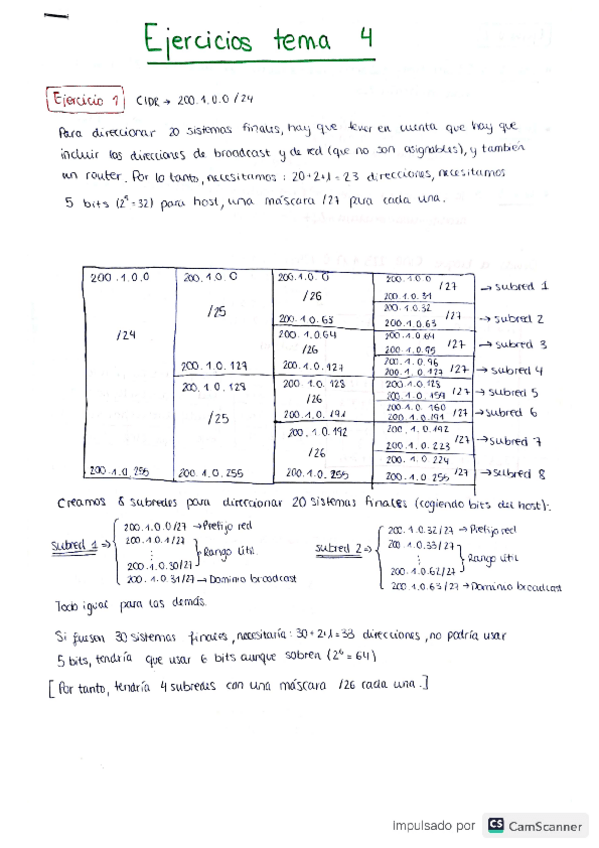 Ejercicios tema 4
Ejercicio 1 CIDR → 200.1.0.0 /24
Para direccionar 20 sistemas finales, hay que tener en cuenta que hay que
incluir las direcciones de broadcast y de red (que no son asignables), y también
un router. Por lo tanto, necesitamos: 20+2+1=23 direcciones, necesitamos
5 bits (2^5=32) para host, una máscara /27 para cada una.
200.1.0.0 200.1.0.0 200.1.0.0 200.1.0.0
/27 → subred 1
/26 200.1.0.31
/25 200.1.0.32
200.1.0.63 200.1.0.63 /27 → subred 2
/24 200.1.0.64 200.1.0.64
/26 200.1.0.95 /27 → subred 3
200.1.0.96
200.1.0.127 200.1.0.127 200.1.0.127 /27 → subred 4
200.1.0.128 200.1.0.128 200.1.0.128
/26 200.1.0.159 /27 → subred 5
200.1.0.160
/25 200.1.0.191 200.1.0.191 /27 → subred 6
200.1.0.192 200.1.0.192
200.1.0.223 /27 → subred 7
/26 200.1.0.224
200.1.0.255 200.1.0.255 200.1.0.255 200.1.0.255 /27 → subred 8
Creamos 8 subredes para direccionar 20 sistemas finales (cogiendo bits del host):
subred 1 ⇒ 200.1.0.0/27 → Prefijo red
200.1.0.1/27
⋮ Rango útil
200.1.0.30/27
200.1.0.31/27 → Dominio broadcast
subred 2 ⇒ 200.1.0.32/27 → Prefijo red
200.1.0.33/27
⋮ Rango útil
200.1.0.62/27
200.1.0.63/27 → Dominio broadcast
Todo igual para las demás.
Si fuesen 30 sistemas finales, necesitaría: 30+2+1=33 direcciones, no podría usar
5 bits, tendría que usar 6 bits aunque sobren (2^6=64)
[Por tanto, tendría 4 subredes con una máscara /26 cada una.]
Impulsado por CS CamScanner